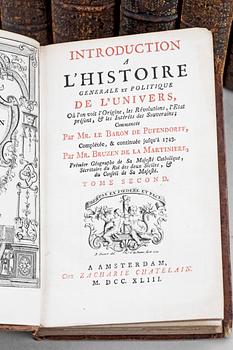 INTRODUCTION
A
L'HISTOIRE
GENERALE ET POLITIQUE
DE L'UNIVERS,
Où l'on voit l'Origine, les Révolutions, l'Etat
présent, & les Intérêts des Souverains;
Commencée
Par MR. LE BARON DE PUFENDORFF,
Complétée, & continuée jusqu'à 1743.
Par MR. BRUZEN DE LA MARTINIERE,
Prémier Géographe de Sa Majesté Catholique,
Sécrétaire du Roi des deux Siciles, &
du Conseil de Sa Majesté.
TOME SECOND.
A AMSTERDAM,
Chez ZACHARIE CHATELAIN.
M. DCC. XLIII.